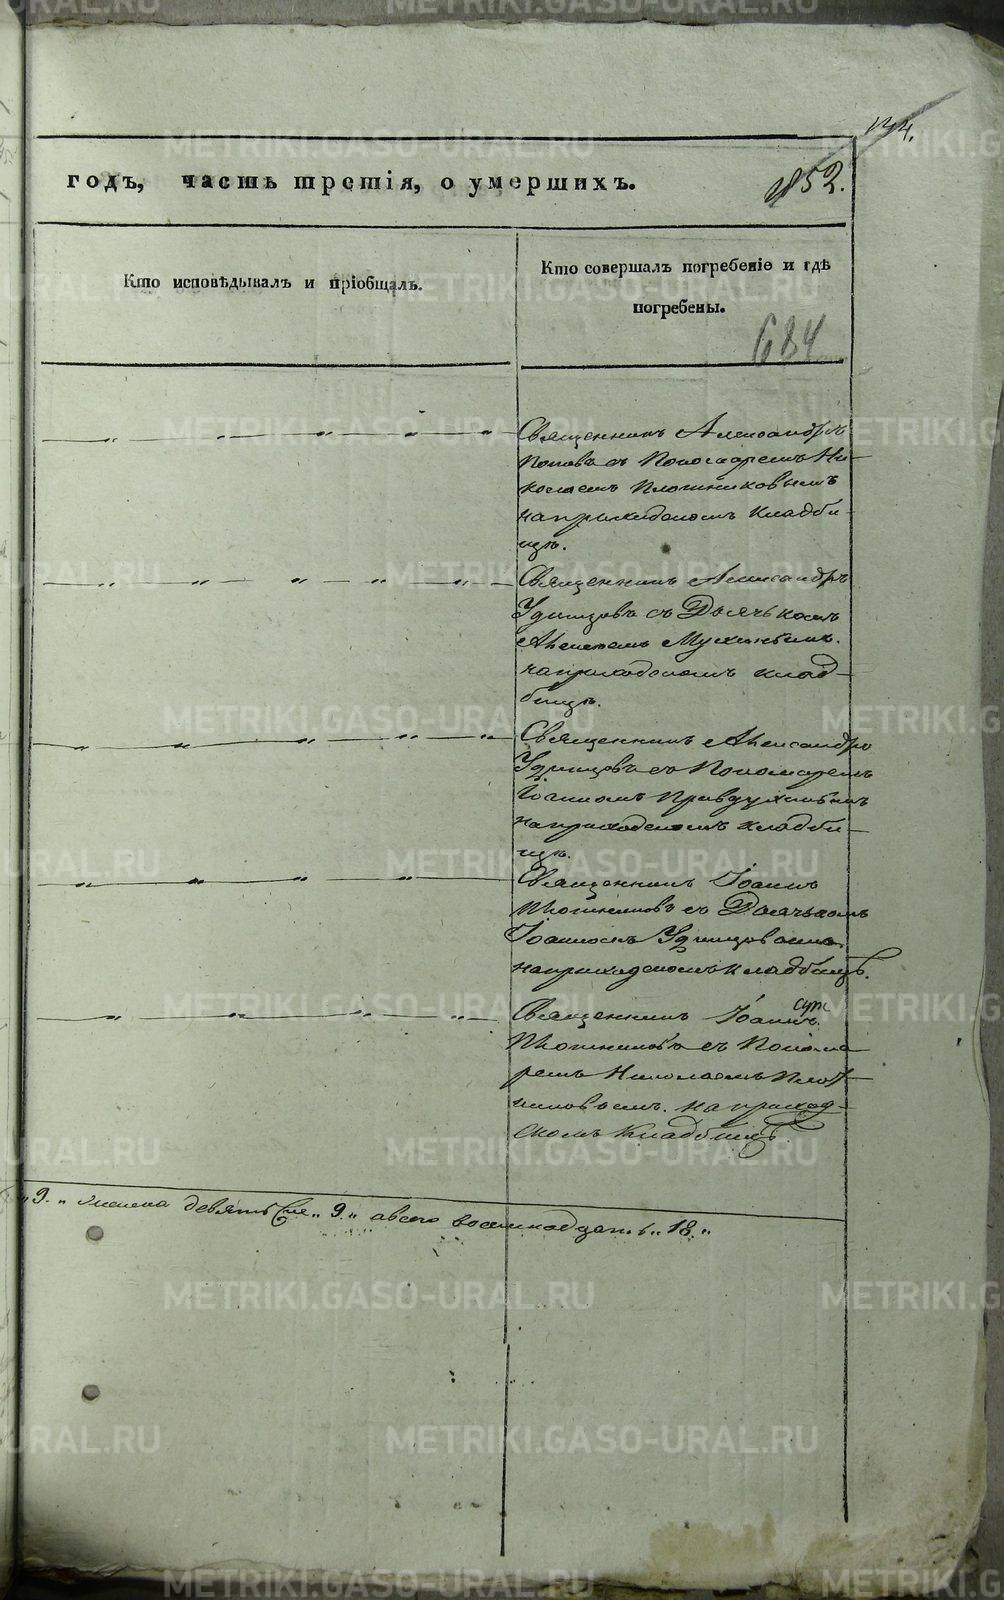 144.
годъ, часть третія, о умершихъ.
1852.
Кто исповѣдывалъ и пріобщалъ.
Кто совершалъ погребеніе и гдѣ
погребены.
684
Священникъ Александръ
Поповъ съ Пономаремъ Ни-
колаемъ Плотниковымъ
на приходскомъ кладби-
щѣ.
Священникъ Александръ
Удинцовъ съ Дьячькомъ
Алексѣемъ Мухинымъ.
на приходскомъ клад-
бищѣ.
Священникъ Александръ
Удинцовъ съ Пономаремъ
Іоанномъ
на приходскомъ кладби-
щѣ.
Священникъ Іоаннъ
Плотниковъ съ Дьячькомъ
Іоанномъ Удинцовымъ
на приходскомъ кладбищѣ.
Священникъ Іоаннъ
Плотниковъ съ Понома
ремъ Николаемъ Плот-
никовымъ. на приход-
скомъ кладбищѣ
„9.„ женска девять „9.„ а всего восемнадцать „18.„
METRIKI.GASO-URAL.RU